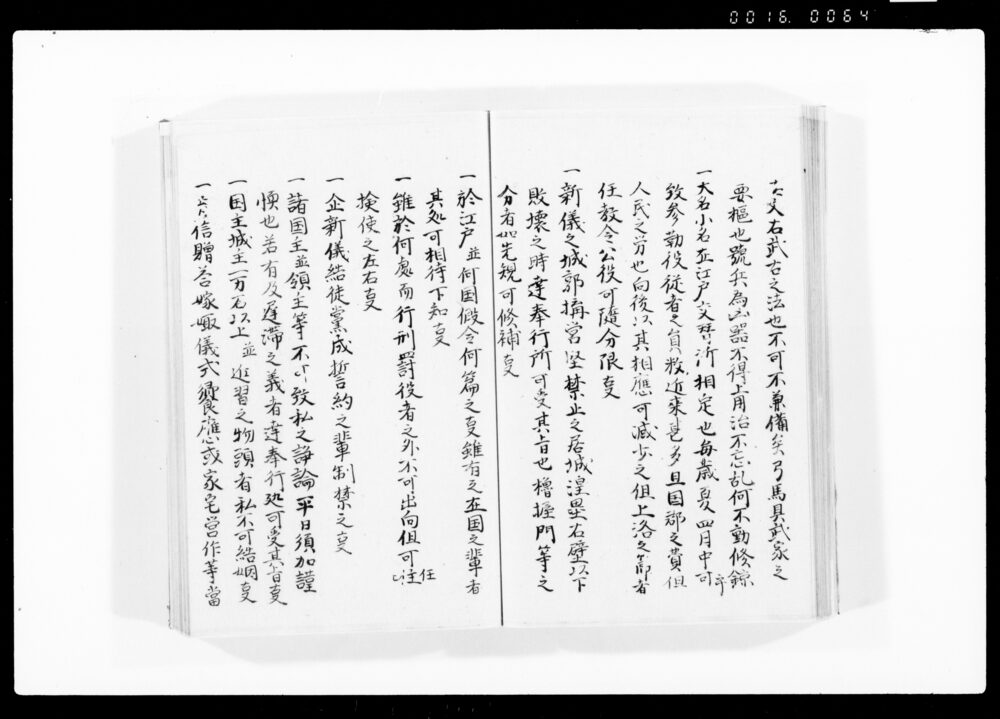 0016. 0064
左文右武古之法也不可不兼備矣弓馬是武家之
要樞也號兵為凶器不得止而用治不忘乱何不勤修錬
一大名小名在江戸交替所相定也毎歳夏四月中可
致参勤役従者之員数近来甚多且国郡之費但
人民之労也向後以其相應可減少之但上洛之節者
任教令公役可随分限叓
一新儀之城郭搆営堅禁止之居城湟塁石壁以下
敗壊之時達奉行所可受其旨也櫓塀門等之
分者如先規可修補叓
一於江戸並何国假令何篇之叓雖有之在国之輩者
其処可相待下知叓
一雖於何處而行刑罰役者之外不可出向但可任
検使之左右叓
一企新儀結徒黨成誓約之輩制禁之叓
一諸国主並領主等不可致私之諍論平日須加謹
慎也若有及遅滞之義者達奉行処可受其旨叓
一国主城主一万石以上並近習之物頭者私不可結婚叓
一音信贈答嫁娵儀式饗應或家宅営作等當